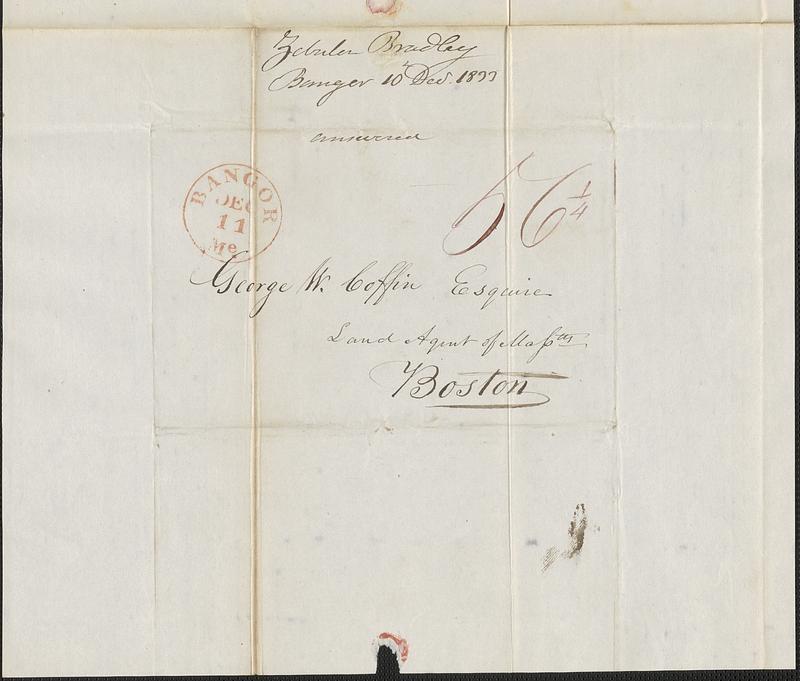 Zebulon Bradley
Bangor 10th Dec. 1833
answered
BANGOR
DEC
11
Me
56 1/4
George W. Coffin Esquire
Land Agent of Masstts
Boston